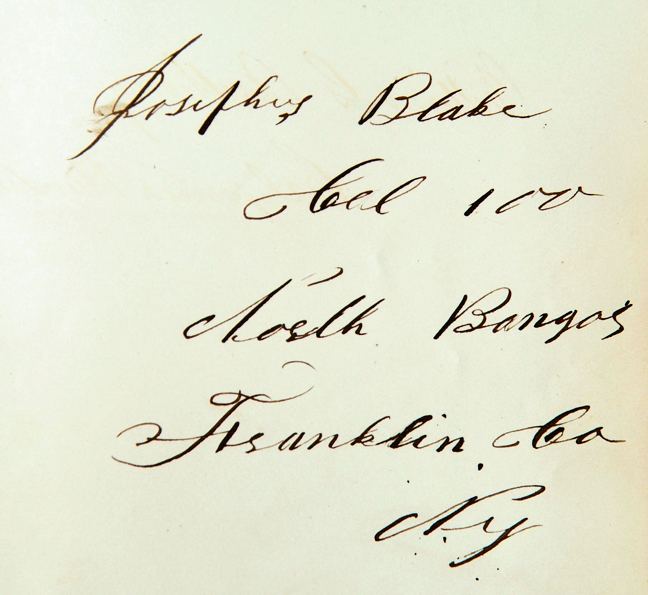 Josephus Blake
Cel 100
North Bangor
Franklin Co
N.y